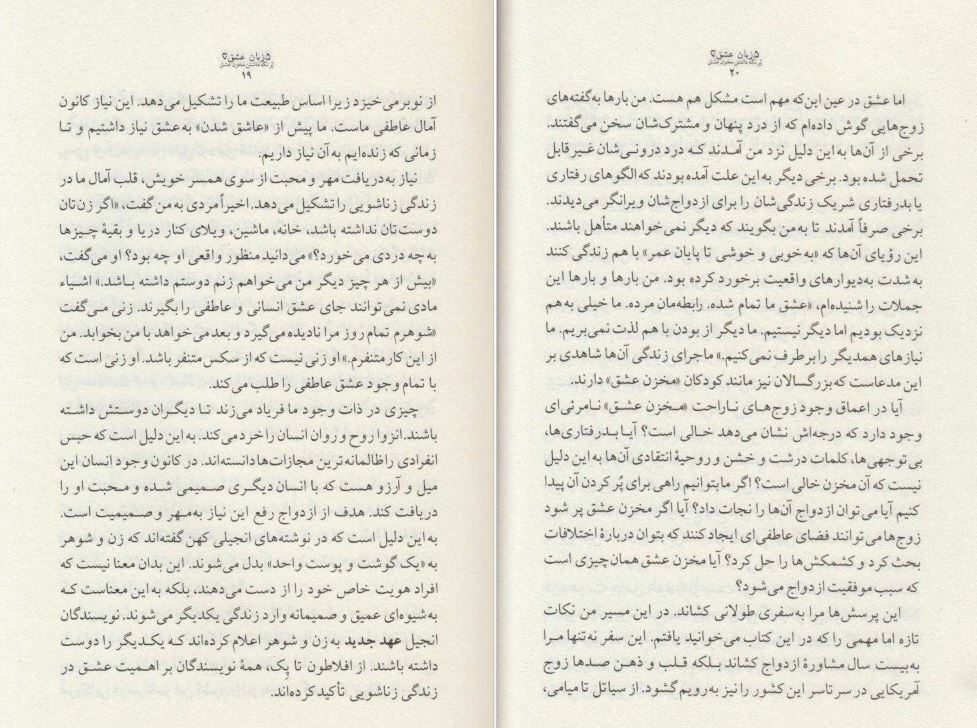 ۵ زبان عشق
پُر نگه داشتن مخزن عشق
۱۹
از نو برمی‌خیزد زیرا اساس طبیعت ما را تشکیل می‌دهد. این نیاز کانون
آمال عاطفی ماست. ما پیش از «عاشق شدن» به عشق نیاز داشتیم و تا
زمانی که زنده‌ایم به آن نیاز داریم.
نیاز به دریافت مهر و محبت از سوی همسر خویش، قلب آمال ما در
زندگی زناشویی را تشکیل می‌دهد. اخیراً مردی به من گفت، «اگر زن‌تان
دوست‌تان نداشته باشد، خانه، ماشین، ویلای کنار دریا و بقیهٔ چیزها
به چه دردی می‌خورد؟» می‌دانید منظور واقعی او چه بود؟ او می‌گفت،
«بیش از هر چیز دیگر من می‌خواهم زنم دوستم داشته باشد.» اشیاء
مادی نمی‌توانند جای عشق انسانی و عاطفی را بگیرند. زنی می‌گفت
«شوهرم تمام روز مرا نادیده می‌گیرد و بعد می‌خواهد با من بخوابد. من
از این کار متنفرم.» او زنی نیست که از سکس متنفر باشد. او زنی است که
با تمام وجود عشق عاطفی را طلب می‌کند.
چیزی در ذات وجود ما فریاد می‌زند تا دیگران دوستش داشته
باشند. انزوا روح و روان انسان را خرد می‌کند. به این دلیل است که حبس
انفرادی را ظالمانه‌ترین مجازات‌ها دانسته‌اند. در کانون وجود انسان این
میل و آرزو هست که با انسان دیگری صمیمی شده و محبت او را
دریافت کند. هدف از ازدواج رفع این نیاز به مهر و صمیمیت است.
به این دلیل است که در نوشته‌های انجیلی کهن گفته‌اند که زن و شوهر
به «یک گوشت و پوست واحد» بدل می‌شوند. این بدان معنا نیست که
افراد هویت خاص خود را از دست می‌دهند، بلکه به این معناست که
به شیوه‌ای عمیق و صمیمانه وارد زندگی یکدیگر می‌شوند. نویسندگان
انجیل عهد جدید به زن و شوهر اعلام کرده‌اند که یکدیگر را دوست
داشته باشند. از افلاطون تا پِک، همهٔ نویسندگان بر اهمیت عشق در
زندگی زناشویی تأکید کرده‌اند.
۵ زبان عشق
پُر نگه داشتن مخزن عشق
۲۰
اما عشق در عین این‌که مهم است مشکل هم هست. من بارها به گفته‌های
زوج‌هایی گوش داده‌ام که از درد پنهان و مشترک‌شان سخن می‌گفتند.
برخی از آن‌ها به این دلیل نزد من آمدند که درد درونی‌شان غیر قابل
تحمل شده بود. برخی دیگر به این علت آمده بودند که الگوهای رفتاری
یا بدرفتاری شریک زندگی‌شان را برای ازدواج‌شان ویرانگر می‌دیدند.
برخی صرفاً آمدند تا به من بگویند که دیگر نمی‌خواهند متأهل باشند.
این رؤیای آن‌ها که «به خوبی و خوشی تا پایان عمر» با هم زندگی کنند
به شدت به دیوارهای واقعیت برخورد کرده بود. من بارها و بارها این
جملات را شنیده‌ام، «عشق ما تمام شده. رابطه‌مان مرده. ما خیلی به هم
نزدیک بودیم اما دیگر نیستیم. ما دیگر از بودن با هم لذت نمی‌بریم. ما
نیازهای همدیگر را برطرف نمی‌کنیم.» ماجرای زندگی آن‌ها شاهدی بر
این مدعاست که بزرگسالان نیز مانند کودکان «مخزن عشق» دارند.
آیا در اعماق وجود زوج‌های ناراحت «مخزن عشق» نامرئی‌ای
وجود دارد که درجه‌اش نشان می‌دهد خالی است؟ آیا بدرفتاری‌ها،
بی‌توجهی‌ها، کلمات درشت و خشن و روحیهٔ انتقادی آن‌ها به این دلیل
نیست که آن مخزن خالی است؟ اگر ما بتوانیم راهی برای پُر کردن آن پیدا
کنیم آیا می‌توان ازدواج آن‌ها را نجات داد؟ آیا اگر مخزن عشق پر شود
زوج‌ها می‌توانند فضای عاطفی‌ای ایجاد کنند که بتوان دربارهٔ اختلافات
بحث کرد و کشمکش‌ها را حل کرد؟ آیا مخزن عشق همان چیزی است
که سبب موفقیت ازدواج می‌شود؟
این پرسش‌ها مرا به سفری طولانی کشاند. در این مسیر من نکات
تازه اما مهمی را که در این کتاب می‌خوانید یافتم. این سفر نه‌تنها مرا
به بیست سال مشاورهٔ ازدواج کشاند بلکه قلب و ذهن صدها زوج
آمریکایی در سرتاسر این کشور را نیز به رویم گشود. از سیاتل تا میامی،